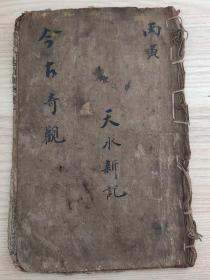 丙寅
天水新記
今古奇觀